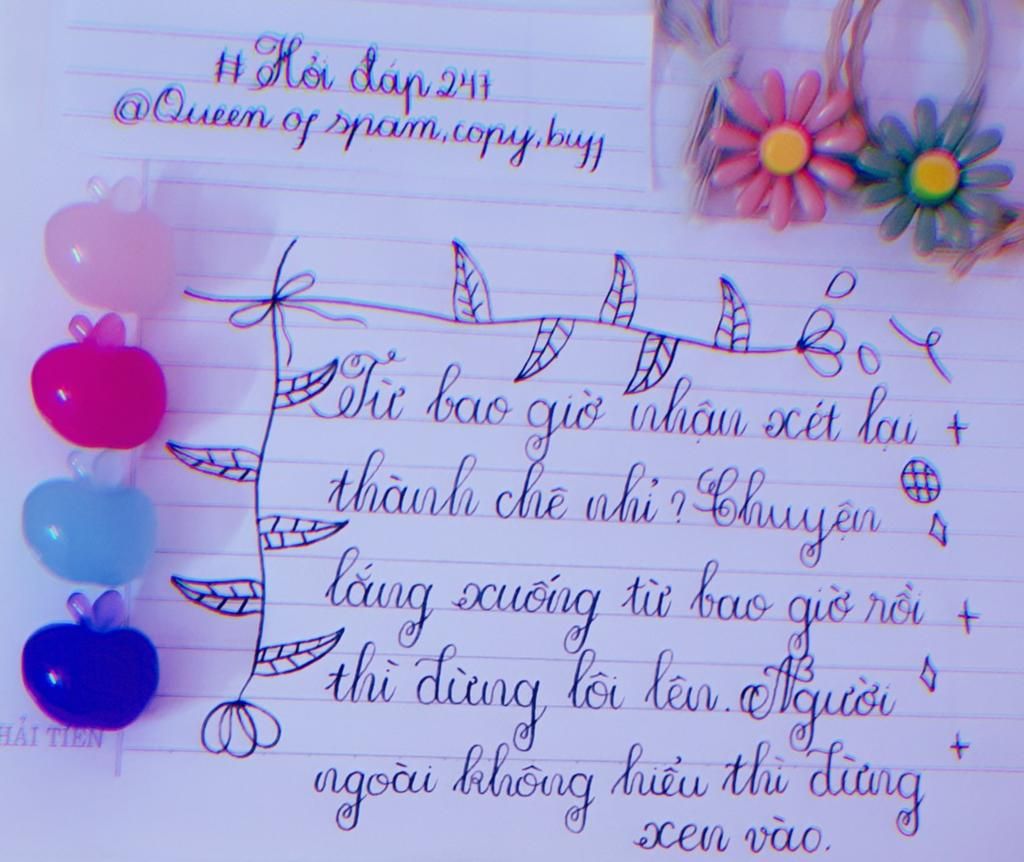 #Hỏi đáp 247
@Queen of spam,copy,buff
Từ bao giờ nhận xét lại
thành chê nhỉ? Chuyện
lắng xuống từ bao giờ rồi
thì đừng lôi lên. Người
ngoài không hiểu thì đừng
xen vào.
HẢI TIẾN